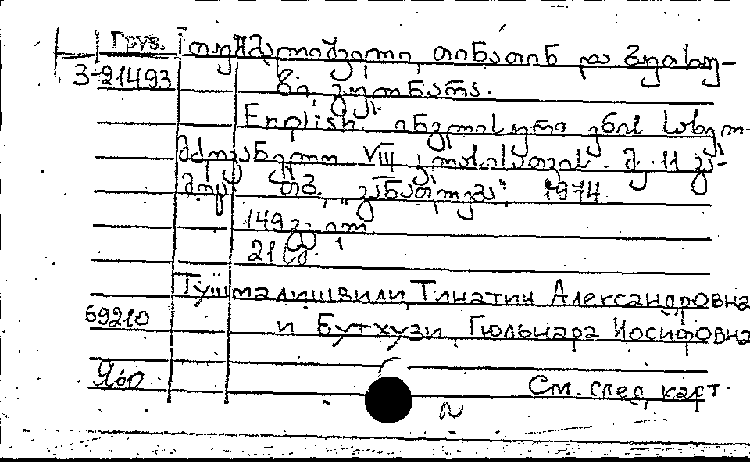 Груз. თუშმალიშვილი, თინათინ და ბუთხუ-
3-21493 ზი, გულნარა.
English. ინგლისური ენის სახელ-
მძღვანელო VIII კლასისათვის. მე-11 გა-
მოც. თბ., „განათლება", 1974
149 გვ. ილ.
21 სმ.
Тушмалишвили, Тинатин Александровна
69210 и Бутхузи, Гюльнара Иосифовна
См. след. карт.